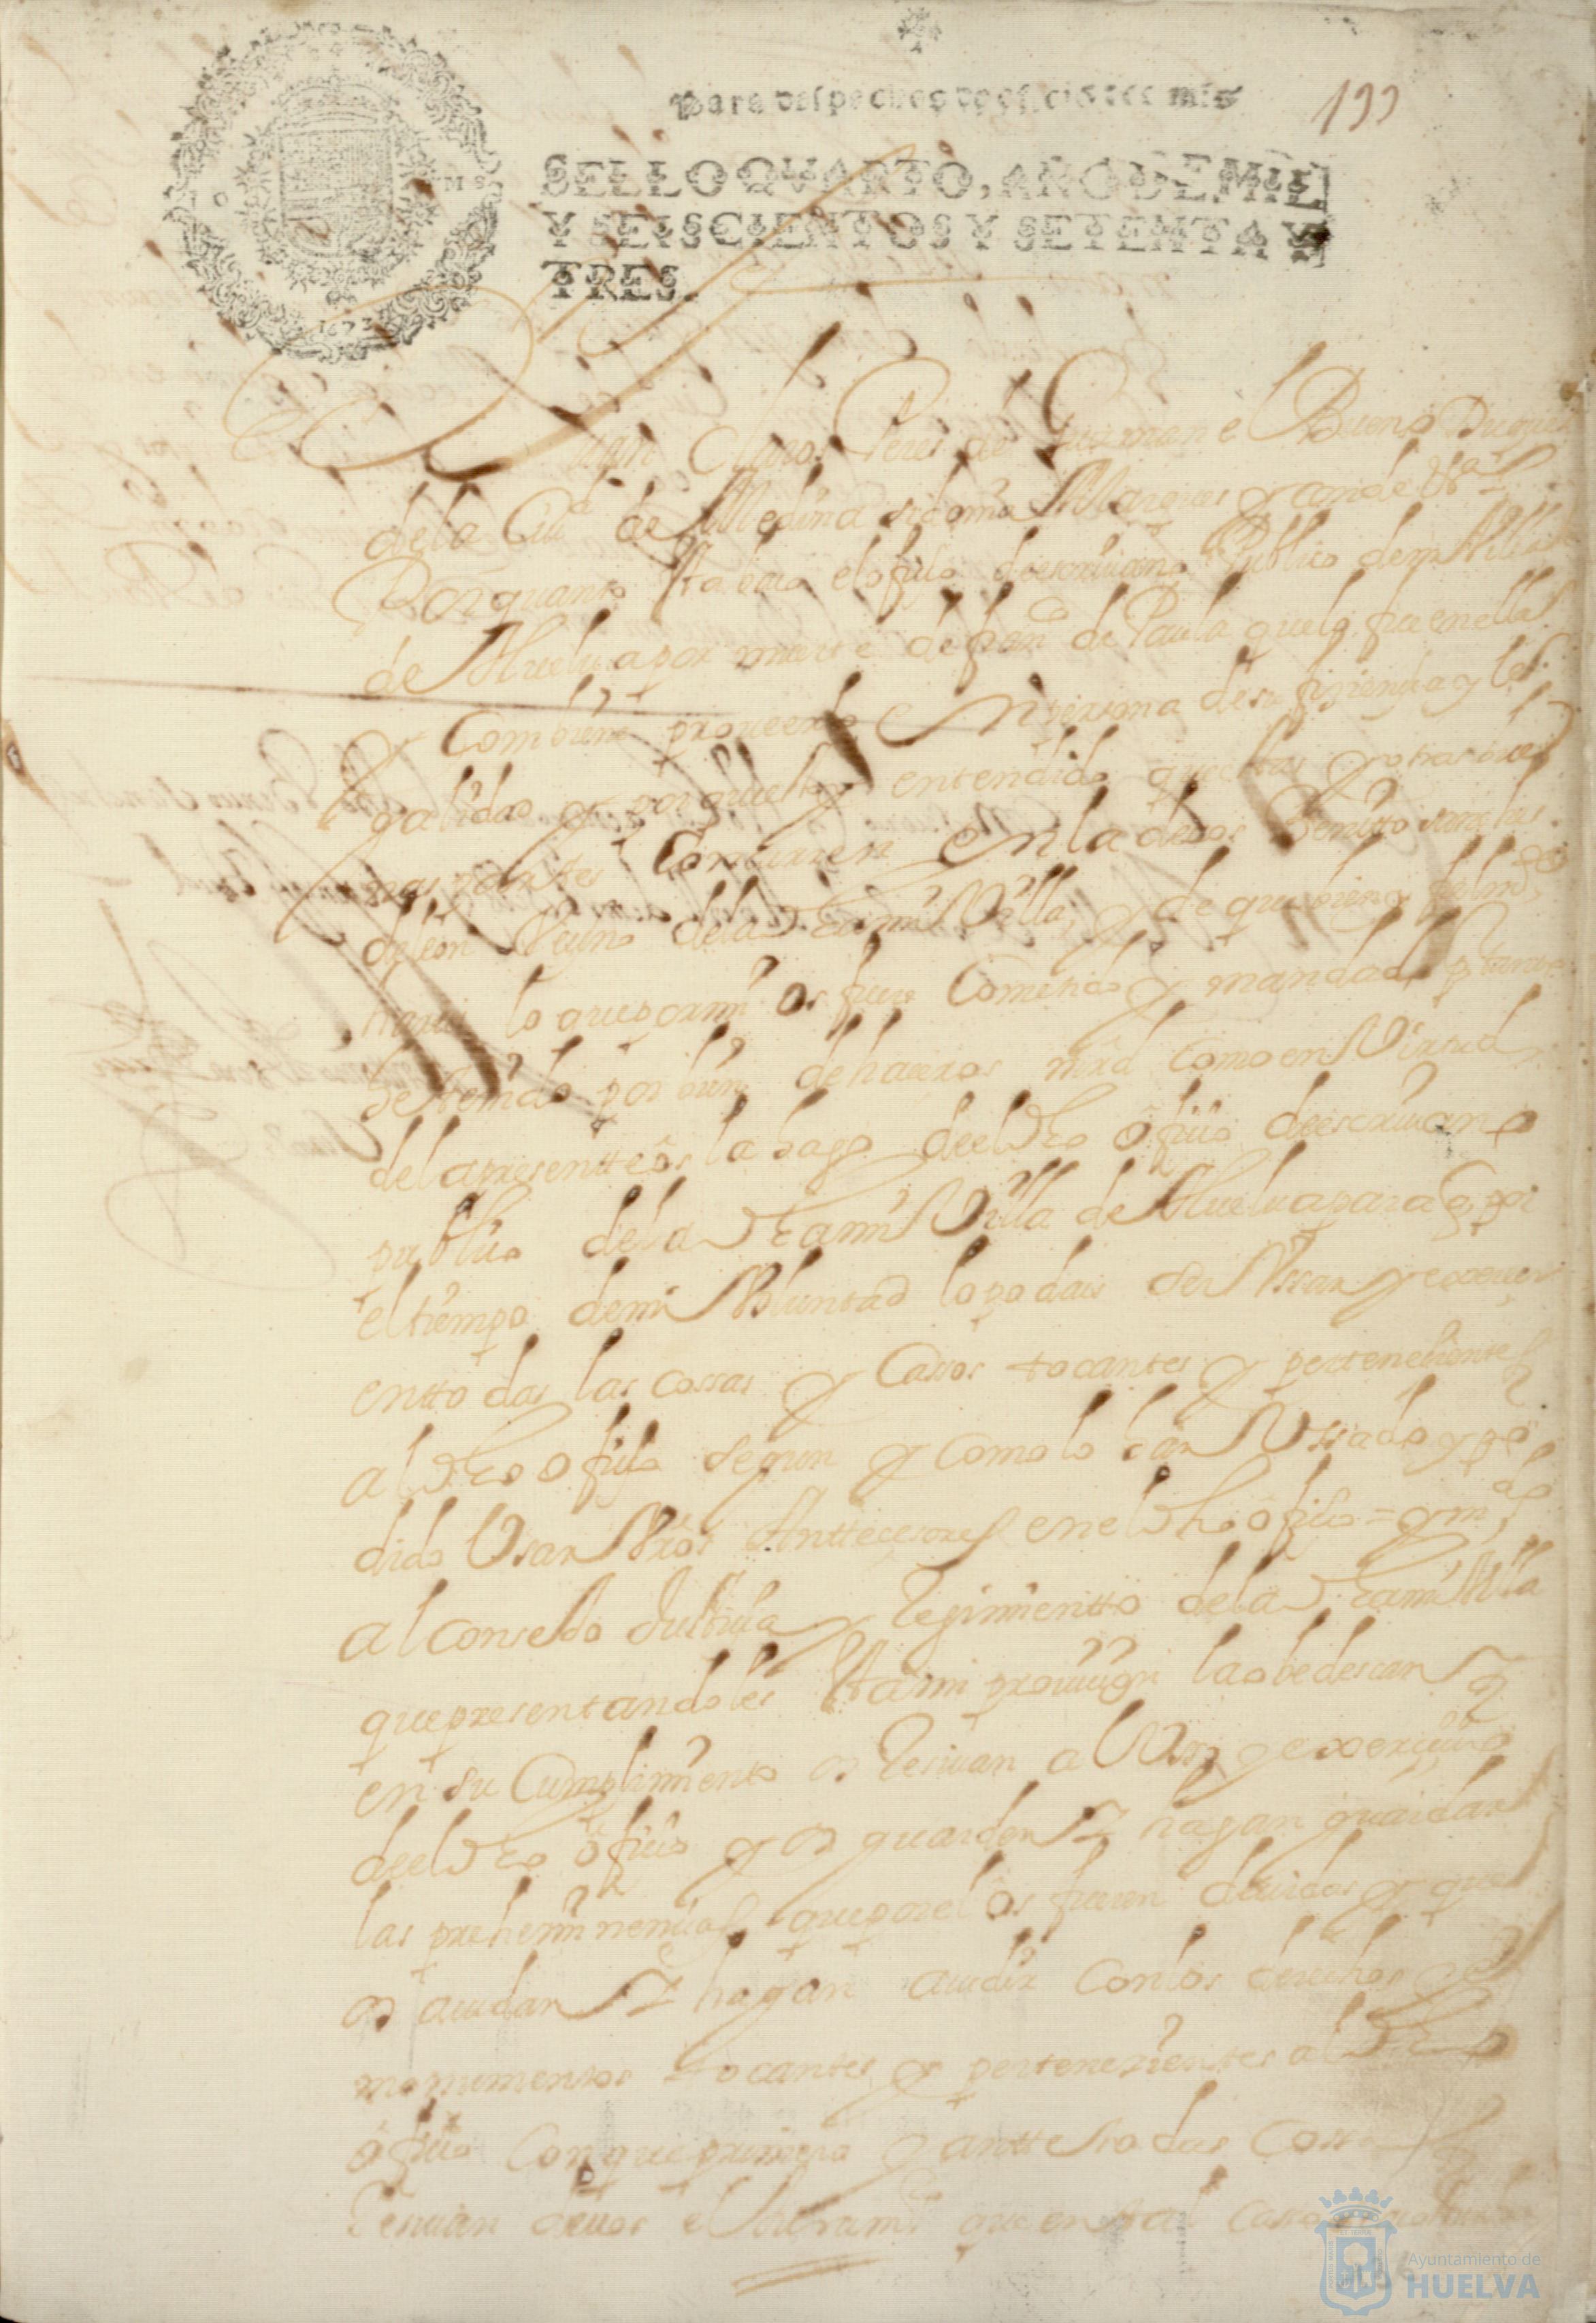 Para despachos de oficio dos mrs
193
SELLO QVARTO, AÑO DE MIL
Y SEISCIENTOS Y SETENTA Y
TRES.
1673
Juan Claros Peres de Guzman el Bueno Duque
de la Ciud de Medina sidonia Marques
Por quanto esta baco el ofiçio de escriuano Publico de mi Villa
de Huelua por muerte de franco de Paula que lo fue en ella
y Combiene proveerlo en persona de sufiçiençia y
calidad y por que soy entendido que estas y otras buenas
partes Concurren en la de vos Benitto
de leon Veçino de la dha mi Villa, y de que bien y fielmte
hareis lo que por mi os fuere Cometido y mandado
he tenido por bien de haçeros mrd como en Virtud
de la presentte os la hago de el dho ofiçio de escriuano
publico de la dha mi Villa de Huelua para q por
el tiempo de mi Voluntad lo podais Vssar y exerçer
en ttodas las cossas y Cassos tocantes y pertenecientes
al dho ofiçio segun y como lo han Vssado y po
dido Usar Vros Anttecesores en el dho ofiçio = y mdo
al consejo Justiçia y Regimientto de la dha mi Villa
que presentandoles esta mi prouiçion la obedescan y
en su Cumplimiento os Resiuan al Vso y exerçiçio
de el dho ofiçio y os guarden y hagan guardar
las preheminençias que por el os fueren deuidas y que
os acudan y hagan acudir con los derechos y
tocantes y pertenezientes al dho
ofiçio Con que primero y antte todas Cossas
Resiuan de vos el Juramto que en tal casso
Ayuntamiento de
HUELVA